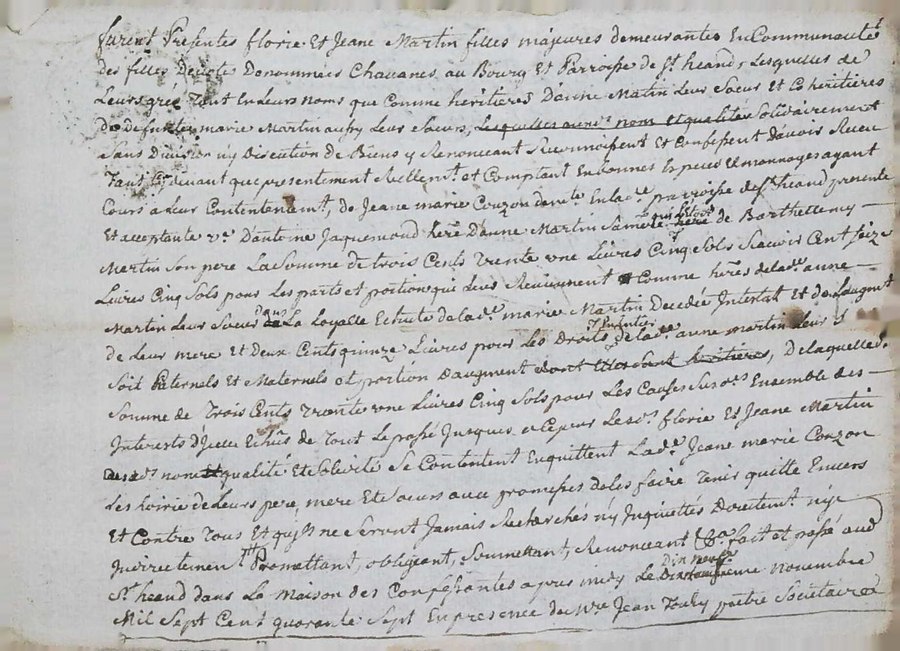 furent Presentes florie Et Jeane Martin filles majeures demeurantes En Communauté
des filles Devote Denommais Chavanes au Bourg Et Parroisse de St heand, Lesquelles de
Leurs gréé Tant En Leurs Noms que Comme heritieres D'anne Matin Leur Soeur Et Coheritieres
de Defuncte marie Martin aussy Leur Soeur, Lesquelles auxds nom Et qualites Solidairement
Sans Division n'y Discution de Biens y Renonceant Reconnoissent Et Confessent Davoir Receu
Tant Cy devant que presentement Réllemt et Comptant En bonnes Especes Et monnoyes ayant
Cours a Leur Contentement, de Jeane marie Couzon Enlade parroisse de St heand presente
Et acceptante ve D'antoine Jaquemond here D'anne Martin Sa mere de Barthellemy
Martin Son pere La Somme de trois Cents trente une Livres Cinq Sols Scavoir Cent seize
Livres Cinq Sols pour Les parts et portion que Leur Reviennent Comme heres delade anne
Martin Leur Soeur dans La Loyalle Echute delade marie Martin Decedée Intestat Et de Laugmt
de Leur mere Et Deux Cents quinze Livres pour Les Droits delade anne martin Leur S
Soit Paternels Et Maternels et portion D'augment dont Elles Sont heritieres, De laquelle de
Somme de Trois Cents Trante une Livres Cinq Sols pour Les Causes Susdes Ensemble des
Interests D'jcelle Echus de Tout Le passé Jusques a Ce jour Lesdes florie Et Jeane Martin
nom Et qualité Se Contentent En quittent Lade Jeane marie Couzon
Les hoirie de Leurs pere, mere Et Soeurs avec promesses de Les faire Tenir quitte Envers
Et Contre Tous Et qu'jls ne Seront Jamais Recherchés n'y Inquiettés Directemt n'y
Jndirectement Promettant, obligeant, Soumettant, Renonceant &a fait et passé aud
St heand dans La Maison des Confessantes apres midy Le Dix neufe novembre
Mil Sept Cent quarante Sept En presence de mre Jean prêtre Societaire